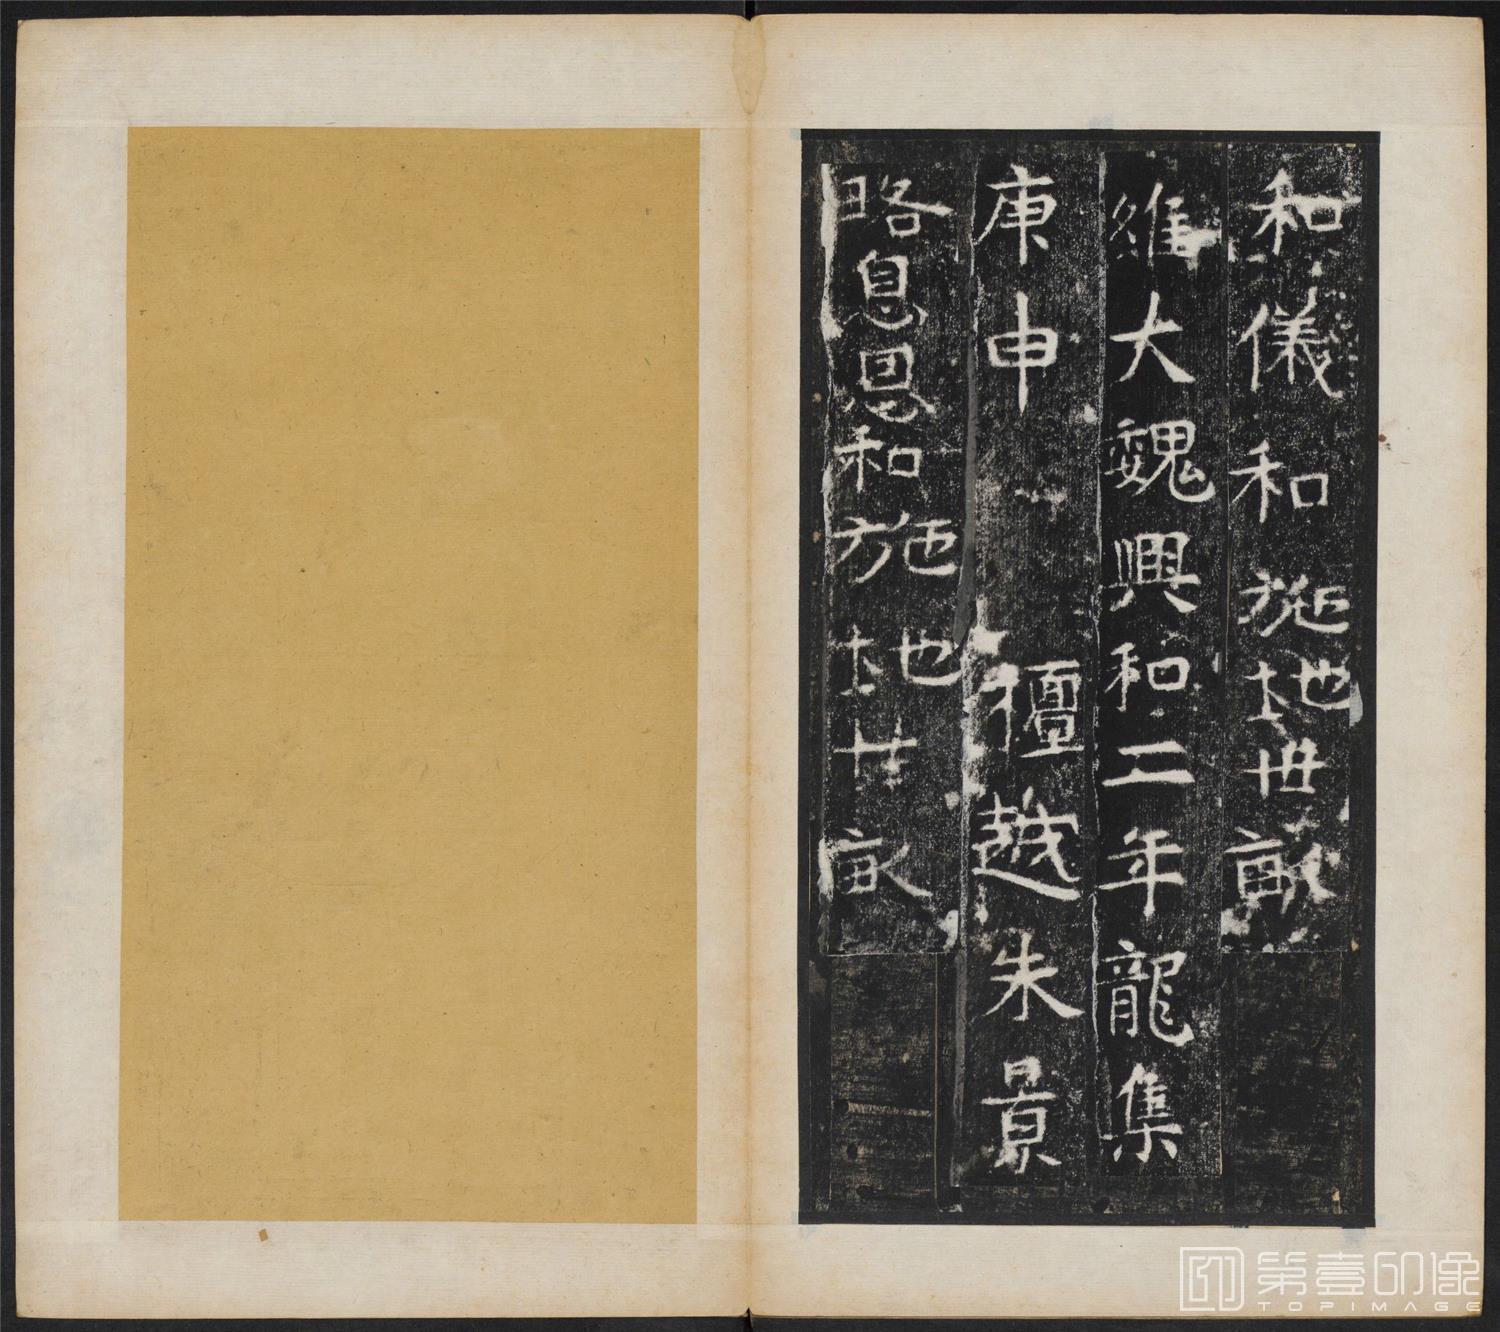 和儀和施地卅畝
維大魏興和二年龍集
庚申　檀越朱景
略息思和施地廿畝
第壹印像
TOPIMAGE